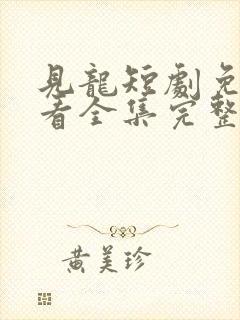 見龍短劇免
看全集完整
黃美珍